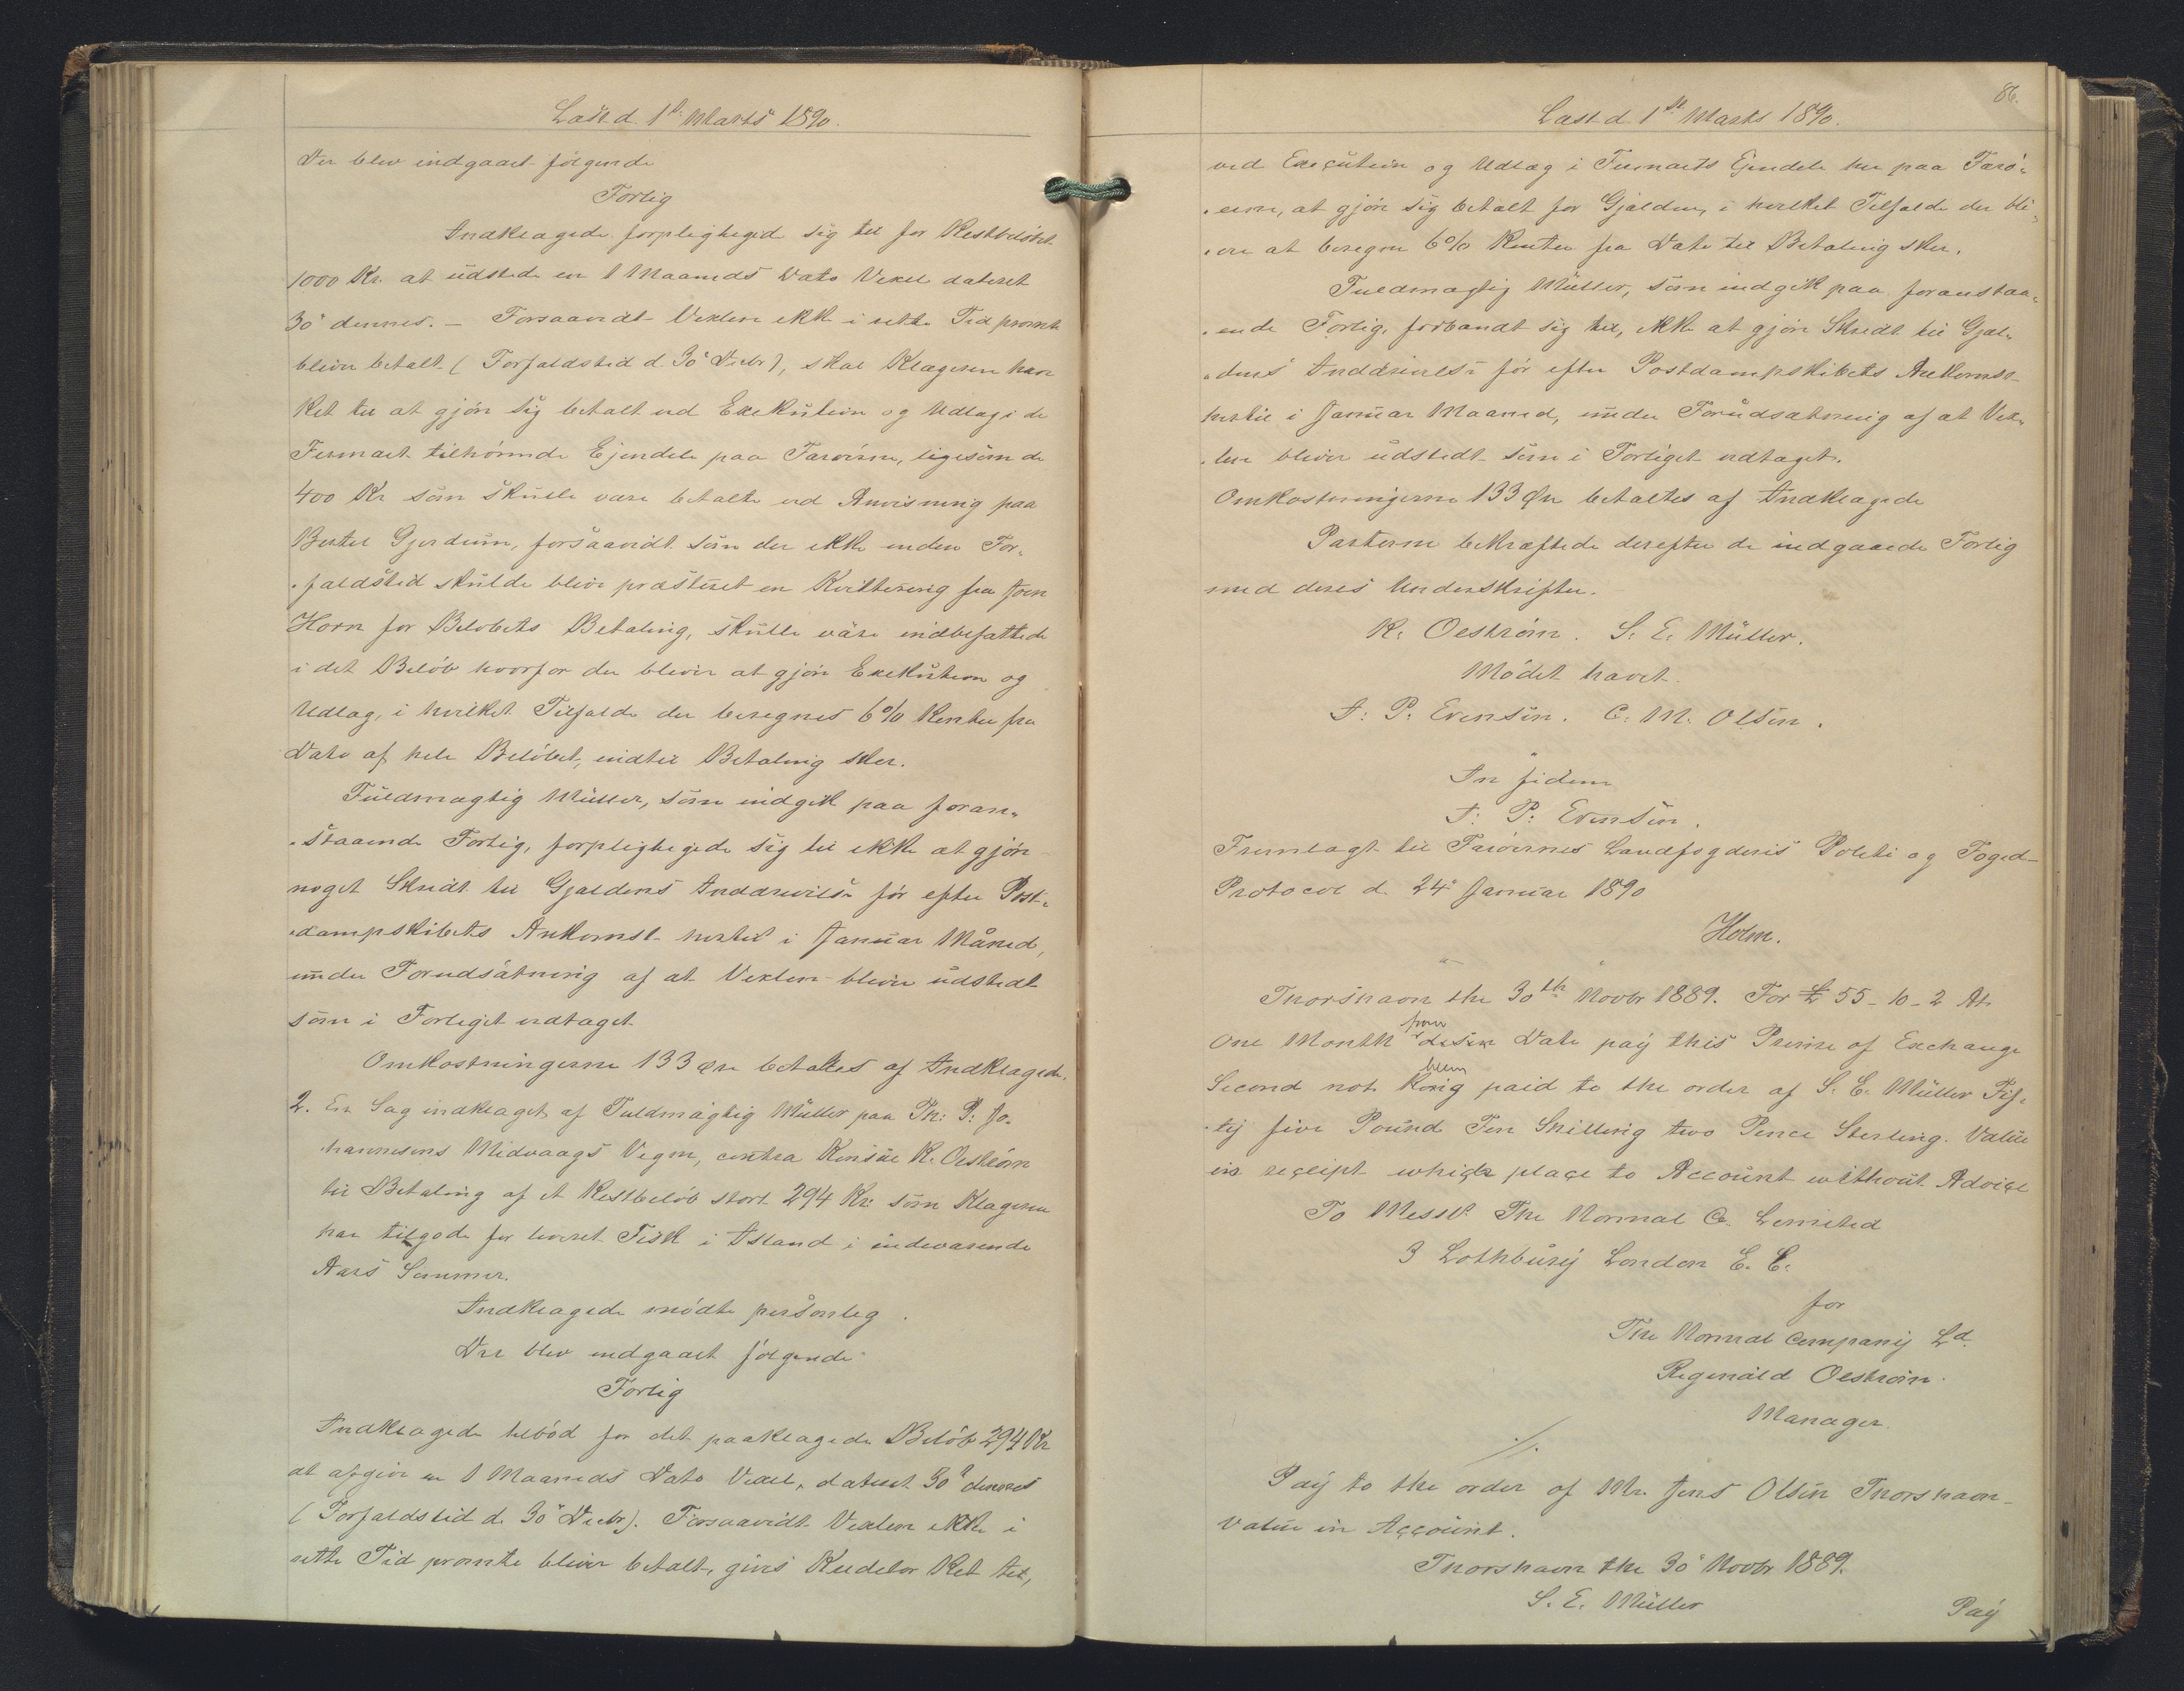 Læst d. 1st Marts 1890.
Der blev indgaaet følgende
Forlig
Indklagede forpligtigede sig til for Restbeløbet
1000 Kr. at udstede en 1 Maaneds Dato Vexel dateret
30' dennes. – Forsaavidt Vexlen ikke i rette Tid promte
bliver betalt (Forfaldstid d. 30' Decbr), skal Klageren have
Ret til at gjøre sig betalt ved Exekution og Udlæg i de
Firmaet tilhørende Ejendele paa Færøerne, ligesom de
400 Kr som skulle være betalte ved Anvisning paa
Bertel Gjerdum, forsaavidt som der ikke inden For-
-faldstid skulde blive præsteret en Kvittering fra Joen
Horn for Beløbets Betaling, skulle være indbefattede
i det Beløb hvorfor der bliver at gjøre Exekution og
Udlæg, i hvilket Tilfælde der beregnes 6% Renter fra
Dato af hele Beløbet, indtil Betaling sker.
Fuldmægtig Müller, som indgik paa foran-
-staaende Forlig, forpligtigede sig til ikke at gjøre
noget Skridt til Gjældens Inddrivelse før efter Post-
-dampskibets Ankomst hertil i Januar Måned,
under Forudsætning af at Vexlen bliver udstedt
som i Forliget vedtaget.
Omkostningerne 133 Øre betaltes af Indklagede.
2. En Sag indklaget af Fuldmægtig Müller paa Th: P: Jo-
-hannesens Midvaags Vegne, contra Konsul R. Oeström
til Betaling af et Restbeløb stort 294 Kr. som Klageren
har tilgode for leveret Fisk i Island i indeværende
Aars Sommer.
Indklagede mødte personlig.
Der blev indgaaet følgende
Forlig
Indklagede tilbød for det paaklagede Beløb 294 Kr
at afgive en 1 Maaneds Dato Vexel, dateret 30' dennes
(Forfaldstid d. 30' Decbr). Forsaavidt Vexlen ikke i
rette Tid promte bliver betalt, gives Kreditor Ret til,
86.
Læst d. 1st Marts 1890.
ved Execution og Udlæg i Firmaets Ejendele her paa Færø-
-erne, at gjøre sig betalt for Gjælden, i hvilket Tilfælde der bli-
-ver at beregne 6% Renter fra Dato til Betaling sker.
Fuldmægtig Müller, som indgik paa foranstaa-
-ende Forlig, forbandt sig til, ikke at gjøre Skridt til Gjæl-
-dens Inddrivelse før efter Postdampskibets Ankomst
hertil i Januar Maaned, under Forudsætning af at Vex-
-len bliver udstedt som i Forliget vedtaget.
Omkostningerne 133 Øre betaltes af Indklagede
Parterne bekræftede derefter de indgaaede Forlig
med deres Underskrifter.
R. Oeström. S. E. Müller.
Mødet hævet.
I: P: Evensen. C. M. Olsen.
In fidem
I: P: Evensen.
Fremlagt til Færøernes Landfogderis Politi og Foged-
Protocol d. 24' Januar 1890
Holm.
Thorshavn the 30th Novbr 1889. For £ 55-10-2 At
from
One Month Date pay this Prime of Exchange
Second not paid to the order of S. E. Müller Fif-
-ty five Pound Ten Shilling two Pence Sterling. Value
in receipt which place to Account without Advice
To Messrs The Normal Co. Limited
3 Lothbury London E. C.
for
The Normal Company Ld.
Reginald Oeström.
Manager.
./.
Pay to the order of Mr. Jens Olsen Thorshavn
Value in Account.
Thorshavn the 30' Novbr 1889.
S. E. Müller
Pay